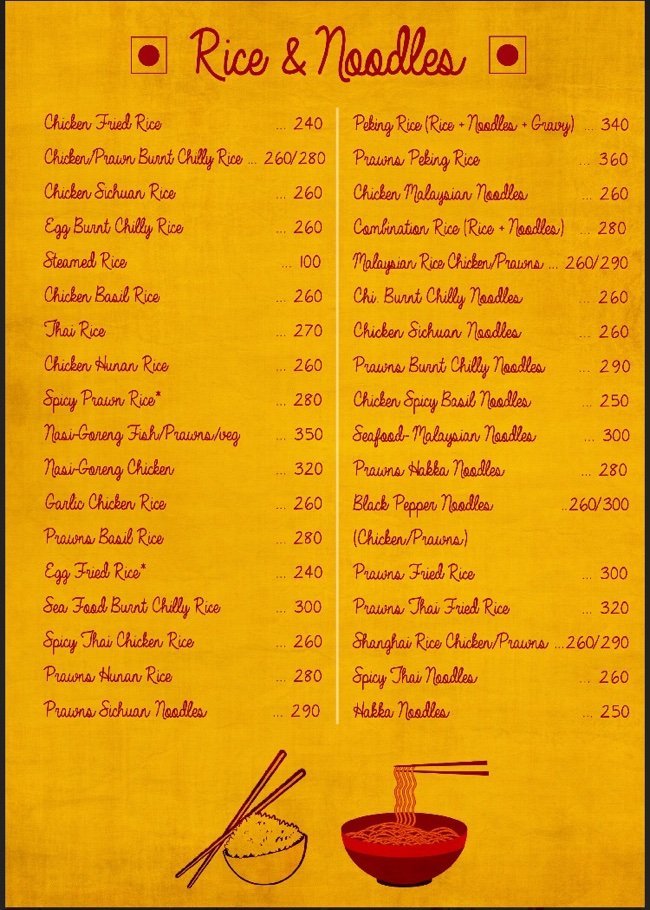 Rice & Noodles
Chicken Fried Rice ... 240
Chicken/Prawn Burnt Chilly Rice ... 260/280
Chicken Sichuan Rice ... 260
Egg Burnt Chilly Rice ... 260
Steamed Rice ... 100
Chicken Basil Rice ... 260
Thai Rice ... 270
Chicken Hunan Rice ... 260
Spicy Prawn Rice* ... 280
Nasi-Goreng Fish/Prawns/veg ... 350
Nasi-Goreng Chicken ... 320
Garlic Chicken Rice ... 260
Prawns Basil Rice ... 280
Egg Fried Rice* ... 240
Sea Food Burnt Chilly Rice ... 300
Spicy Thai Chicken Rice ... 260
Prawns Hunan Rice ... 280
Prawns Sichuan Noodles ... 290
Peking Rice (Rice + Noodles + Gravy) ... 340
Prawns Peking Rice ... 360
Chicken Malaysian Noodles ... 260
Combination Rice (Rice + Noodles) ... 280
Malaysian Rice Chicken/Prawns ... 260/290
Chi. Burnt Chilly Noodles ... 260
Chicken Sichuan Noodles ... 260
Prawns Burnt Chilly Noodles ... 290
Chicken Spicy Basil Noodles ... 250
Seafood-Malaysian Noodles ... 300
Prawns Hakka Noodles ... 280
Black Pepper Noodles ...260/300
(Chicken/Prawns)
Prawns Fried Rice ... 300
Prawns Thai Fried Rice ... 320
Shanghai Rice Chicken/Prawns ...260/290
Spicy Thai Noodles ... 260
Hakka Noodles ... 250